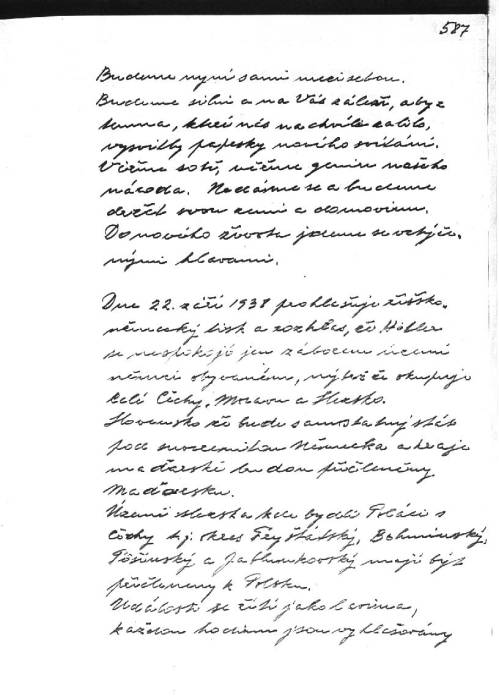 587
Budeme nyní sami mezi sebou.
Budeme silni a na Vás záleží, aby z
temna, které nás na chvíli zalilo,
vysvitly paprsky nového svítání.
Věříme sobě, věříme geniu našeho
národa. Nedáme se a budeme
držet svou zemi a domovinu.
Do nového života jdeme se vztyče-
nými hlavami.
Dne 22. září 1938 prohlašuje říšsko-
německý tisk a rozhlas, že Hitler
se nespokojí jen záborem území
němci obývaném, nýbrž že okupuje
celé Čechy, Moravu a Slezsko.
Slovensko že bude samostatný stát
pod mocenstvím Německa a kraje
maďarské budou přičleněny
Maďarsku.
Území slezska kde bydlí Poláci s
Čechy t.j. okres Fryštátský, Bohumínský,
Těšínský a Jablunkovský mají být
přičleněny k Polsku.
Události se řítí jako lavina,
každou hodinu jsou vyhlašovány